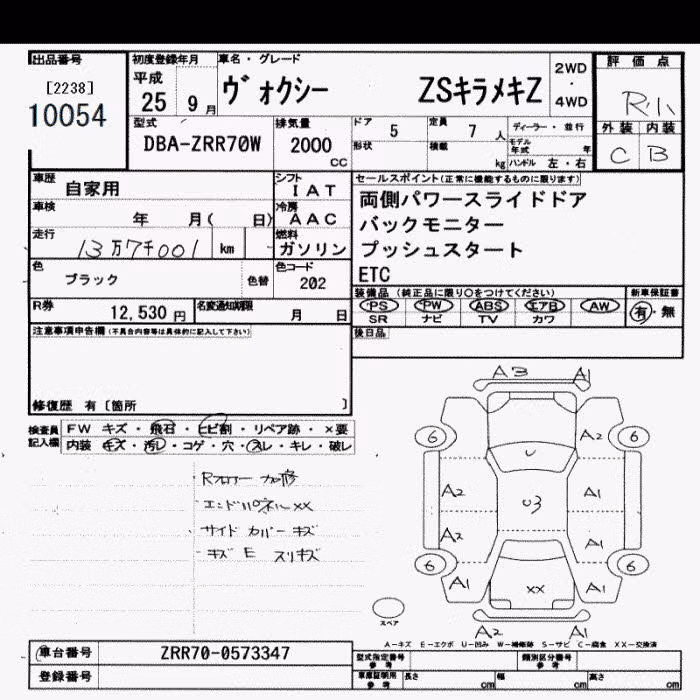 出品番号 初度登録年月 車名・グレード 評価点
[2238] 平成 ヴォクシー ZSキラメキZ 2WD
10054 25 9月 ・ 4WD R小
型式 排気量 ドア 5 定員 7人 ディーラー・並行 外装 内装
DBA-ZRR70W 2000 CC 形状 積載 kg モデル年式 年 ハンドル 左・右 C B
車歴 自家用 シフト IAT セールスポイント(正常に機能するものに限ります)
車検 年 月( 日) 冷房 AAC 両側パワースライドドア
走行 13万7千001 km 燃料 ガソリン バックモニター
プッシュスタート
色 ブラック 色替 色コード 202 ETC
R券 12,530円 名変通知期限 月 日 装備品(純正品に限り○をつけてください) 新車保証書
PS PW ABS エアB AW 有・無
SR ナビ TV カワ
注意事項申告欄(不具合内容等は具体的に記入して下さい) 後日品
修復歴 有〔箇所 〕
検査員 FW キズ・飛石・ヒビ割・リペア跡・×要
記入欄 内装 キズ・汚レ・コゲ・穴・スレ・キレ・破レ
エンドパネルXX
サイドカバーキズ
キズE スリキズ
A3 A1
6 A2 6
U
A2 U3 A1
A2 A1
6 6
A1 XX A1
スペア
A2 A1
A-キズ E-エクボ U-凹み W-補修跡 S-サビ C-腐食 XX-交換済
車台番号 ZRR70-0573347 型式指定番号 参考 類別区分番号 参考
登録番号 車庫証明用 参考 長さ cm 幅 cm 高さ cm